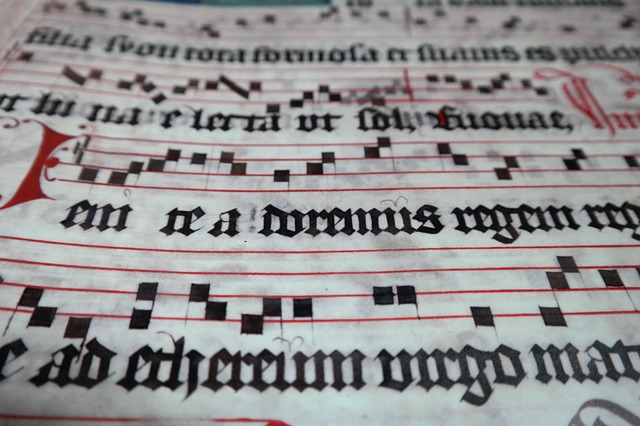 filia syon tota formosa et suauis es pulch
ut lu na e lecta ut sol, Euouae,
eni te a doremus regem reg
ad ethereum virgo mat